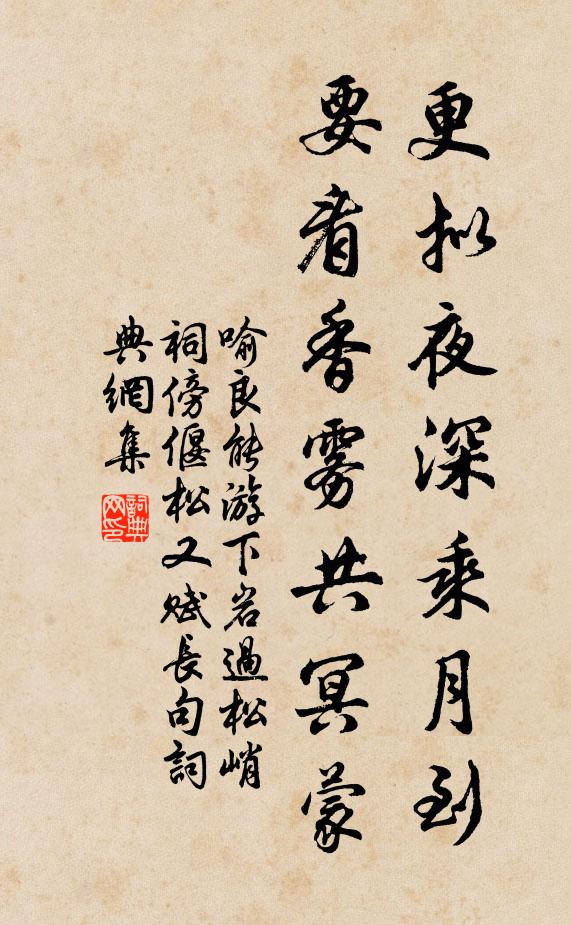 更拟夜深乘月到
要看香雾共冥蒙
喻良能游下岩過松峭
祠傍偃松又赋長句詞
典網集
詞典网印